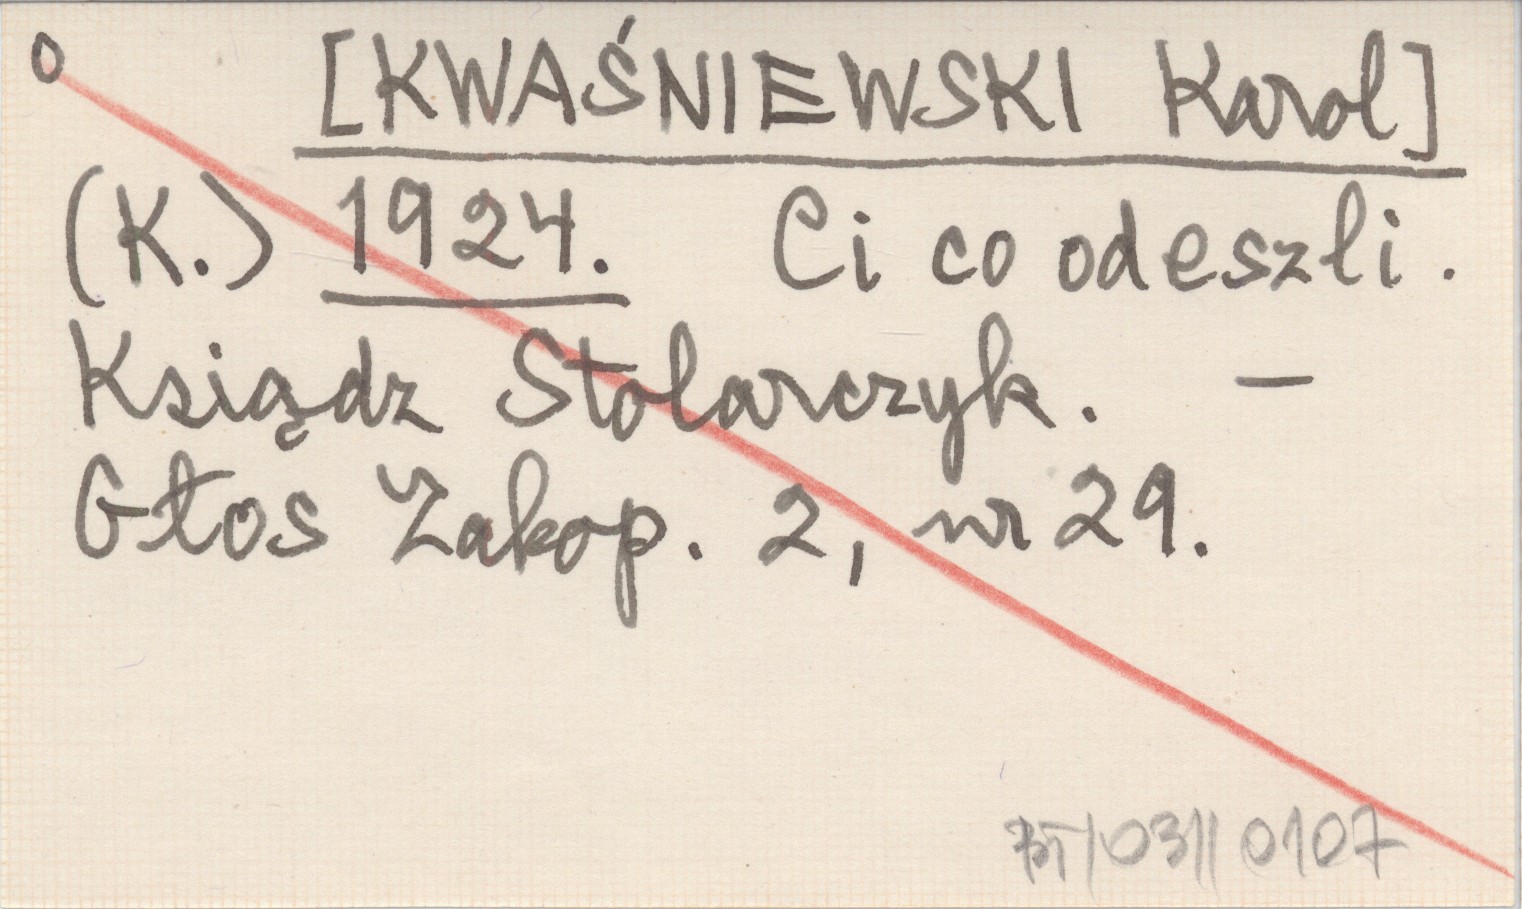 0 [KWAŚNIEWSKI Karol]
(K.) 1924. Ci co odeszli.
Ksiądz Stolarczyk. –
Głos Zakop. 2, nr 29.
BT/031/0107